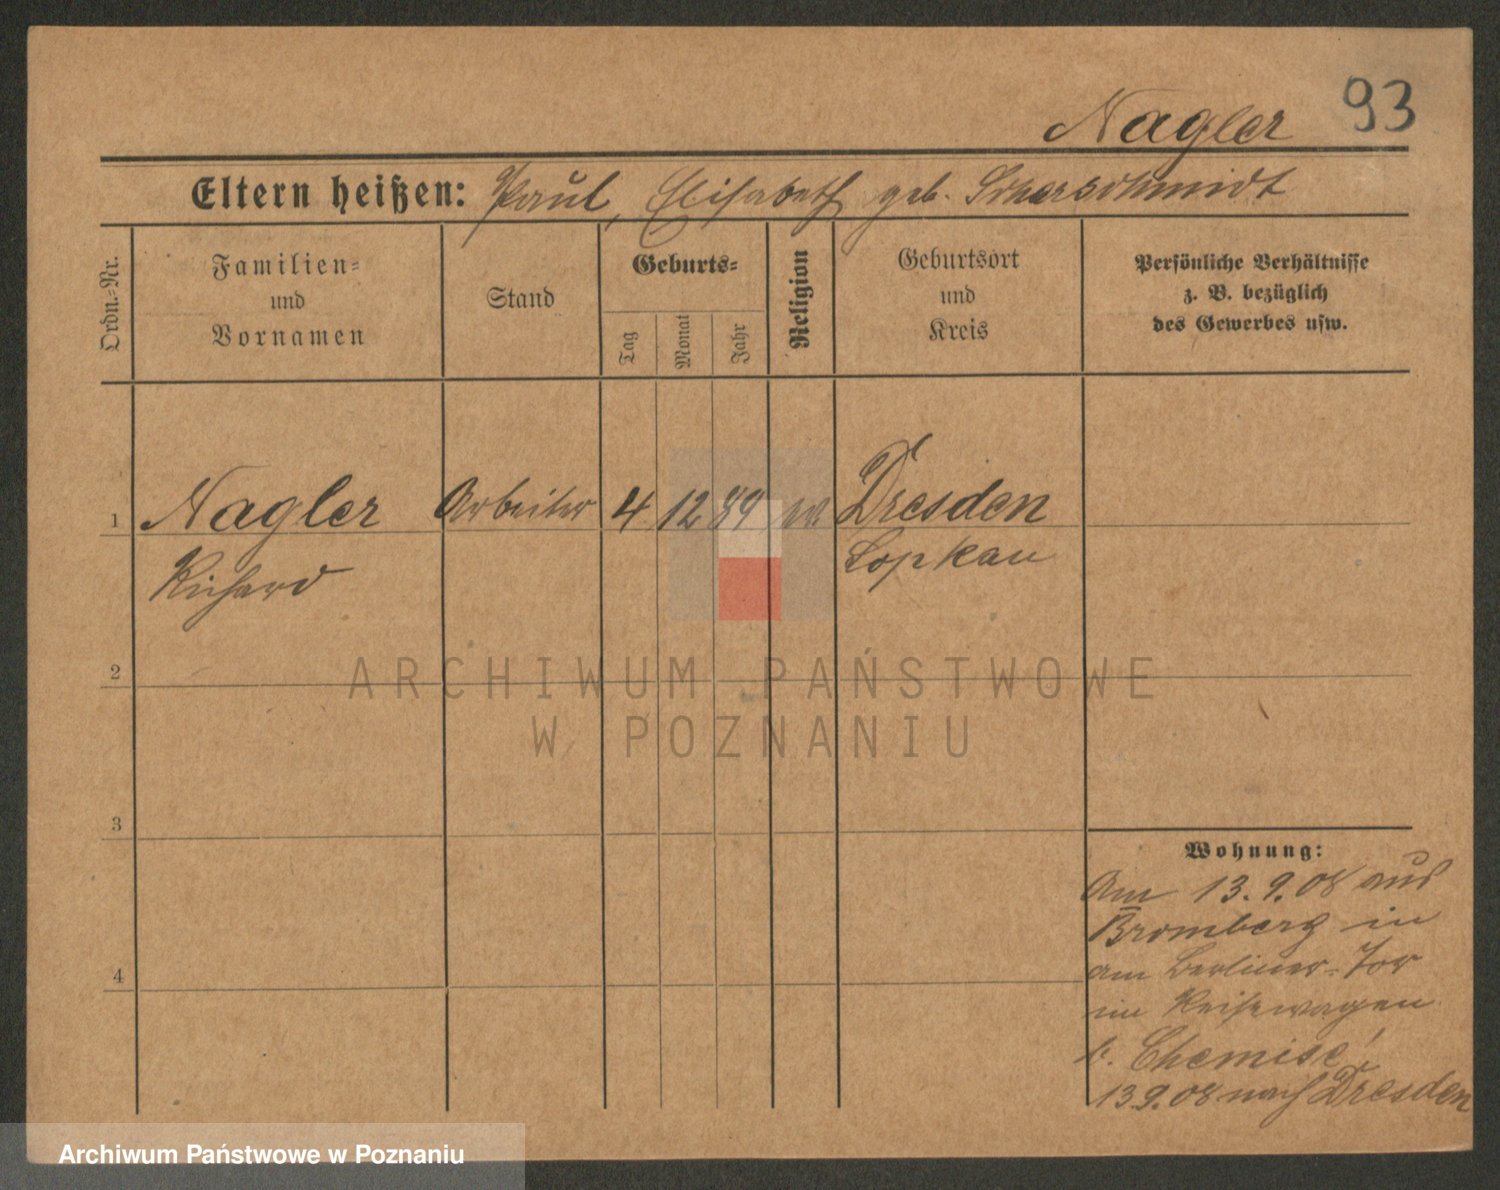 Nagler 93
Eltern heißen: Paul, Elisabeth geb. Scharschmidt
Ordn.-Nr.
Familien-
und
Vornamen
Stand
Geburts-
Tag
Monat
Jahr
Religion
Geburtsort
und
Kreis
Persönliche Verhältnisse
z. B. bezüglich
des Gewerbes usw.
1 Nagler Arbeiter 4 12 89 Dresden
Richard
2
3
4
Wohnung:
Am 13.9.08 aus
Bromberg in
am Berliner-Tor
im Reisewagen
b. Chemisé
13.9.08 nach Dresden
ARCHIWUM PAŃSTWOWE
W POZNANIU
Archiwum Państwowe w Poznaniu